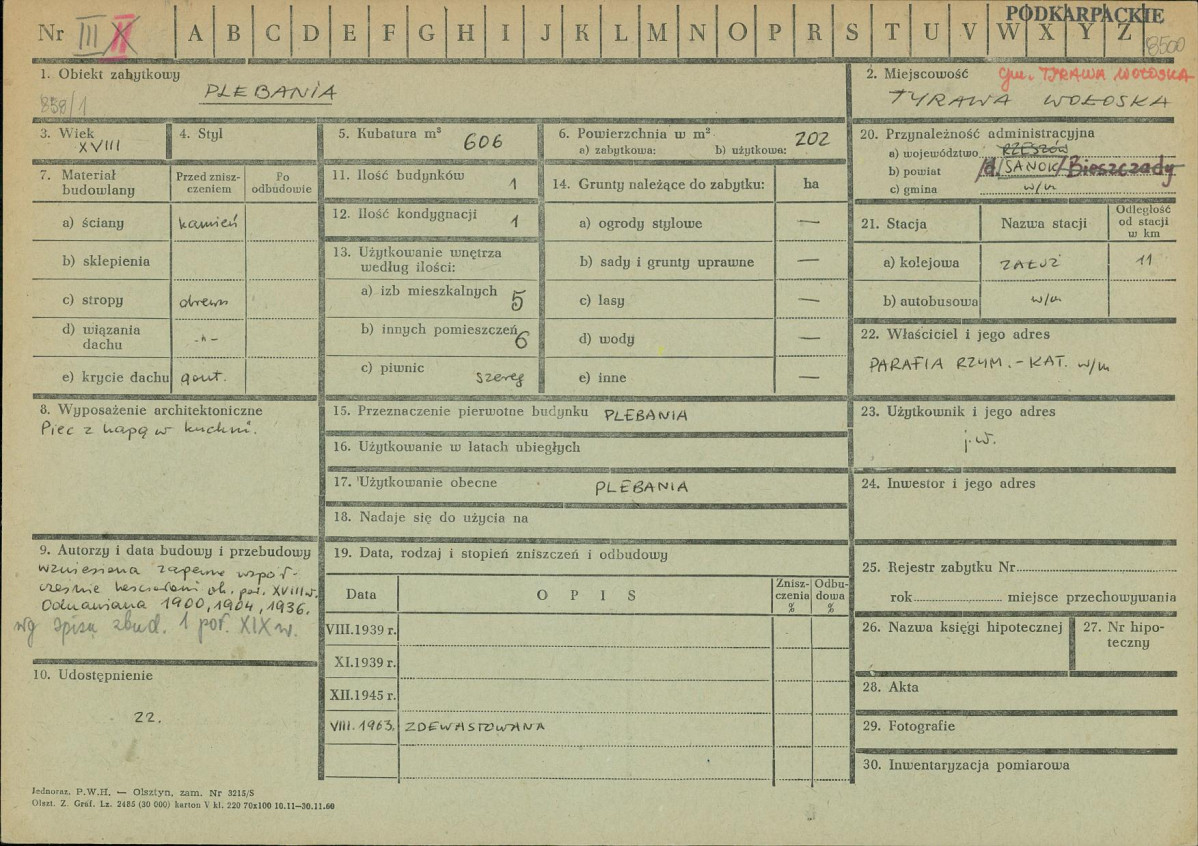 PODKARPACKIE
Nr III II A B C D E F G H I J K L M N O P R S T U V W X Y Z
8500
1. Obiekt zabytkowy
858/1
PLEBANIA
2. Miejscowość gm. TYRAWA WOŁOSKA
TYRAWA WOŁOSKA
3. Wiek
XVIII
4. Styl
5. Kubatura m³ 606
6. Powierzchnia w m² 202
a) zabytkowa: b) użytkowa:
7. Materiał budowlany
Przed znisz-
czeniem
Po
odbudowie
a) ściany kamień
b) sklepienia
c) stropy drewn
d) wiązania
dachu -"-
e) krycie dachu gont.
8. Wyposażenie architektoniczne
Piec z kapą w kuchni.
9. Autorzy i data budowy i przebudowy
Wzniesiona zapewne współ-
cześnie kościołem ok. poł. XVIII w.
Odnawiana 1900, 1904, 1936.
wg spisu zbud. 1 poł. XIX w.
10. Udostępnienie
22.
11. Ilość budynków 1
12. Ilość kondygnacji 1
13. Użytkowanie wnętrza
według ilości:
a) izb mieszkalnych 5
b) innych pomieszczeń 6
c) piwnic szereg
14. Grunty należące do zabytku: ha
a) ogrody stylowe —
b) sady i grunty uprawne —
c) lasy —
d) wody —
e) inne —
15. Przeznaczenie pierwotne budynku PLEBANIA
16. Użytkowanie w latach ubiegłych
17. Użytkowanie obecne PLEBANIA
18. Nadaje się do użycia na
19. Data, rodzaj i stopień zniszczeń i odbudowy
Data OPIS
Znisz-
czenia
%
Odbu-
dowa
%
VIII.1939 r.
XI.1939 r.
XII.1945 r.
VIII.1963. ZDEWASTOWANA
20. Przynależność administracyjna
a) województwo RZESZÓW
b) powiat /d. SANOK/ Bieszczady
c) gmina w/m
21. Stacja Nazwa stacji
Odległość
od stacji
w km
a) kolejowa ZAŁUŻ 11
b) autobusowa w/m
22. Właściciel i jego adres
PARAFIA RZYM.-KAT. w/m
23. Użytkownik i jego adres
j.w.
24. Inwestor i jego adres
25. Rejestr zabytku Nr
rok miejsce przechowywania
26. Nazwa księgi hipotecznej
27. Nr hipo-
teczny
28. Akta
29. Fotografie
30. Inwentaryzacja pomiarowa
Jednoraz. P.W.H. — Olsztyn, zam. Nr 3215/S
Olszt. Z. Graf. Lz. 2485 (30 000) karton V kl. 220 70x100 10.11—30.11.60